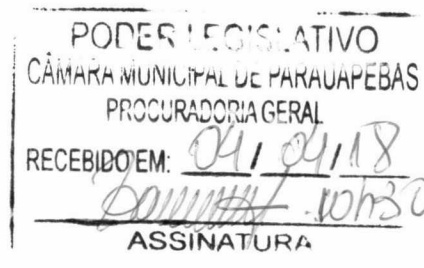 PODER LEGISLATIVO
CÂMARA MUNICIPAL DE PARAUAPEBAS
PROCURADORIA GERAL
RECEBIDO EM: 04 / 04 / 18
10h30
ASSINATURA